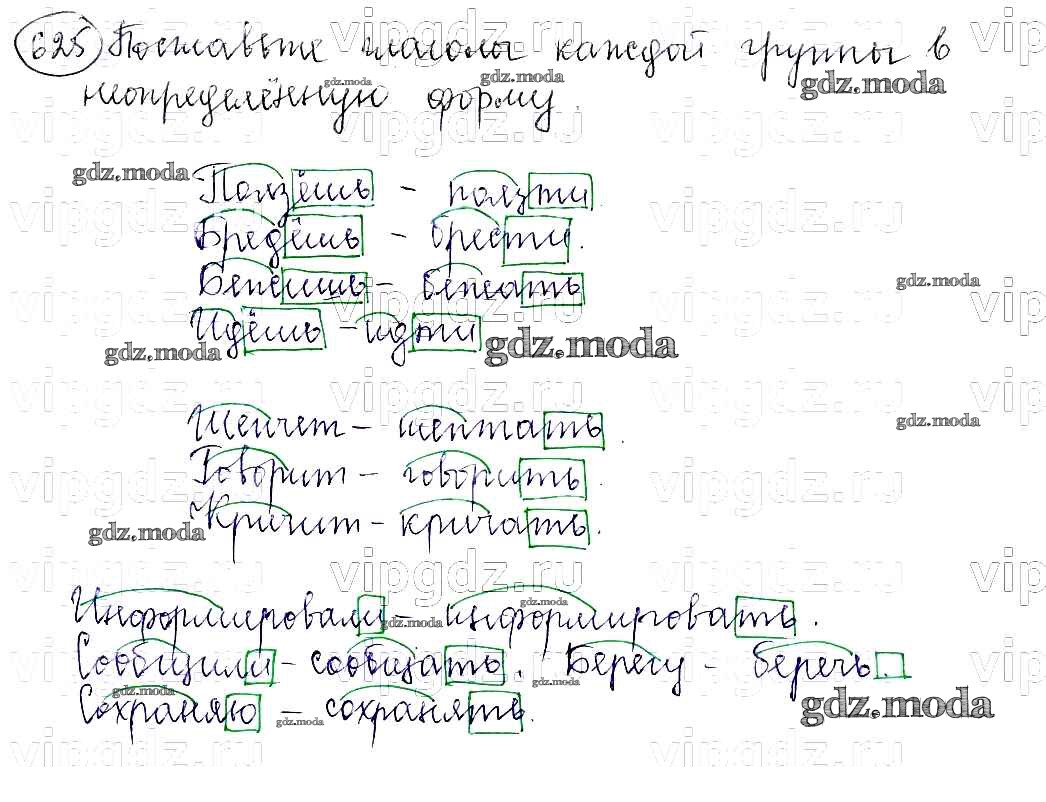 625 Поставьте глаголы каждой группы в
неопределённую форму.
Ползёшь - ползти.
Бредёшь - брести.
Бежишь - бежать
Идёшь - идти
Шепчет - шептать.
Говорит - говорить.
Кричит - кричать.
Информировали - информировать.
Сообщили - сообщать. Берегу - беречь.
Сохраняю - сохранять.
gdz.moda
vipgdz.ru